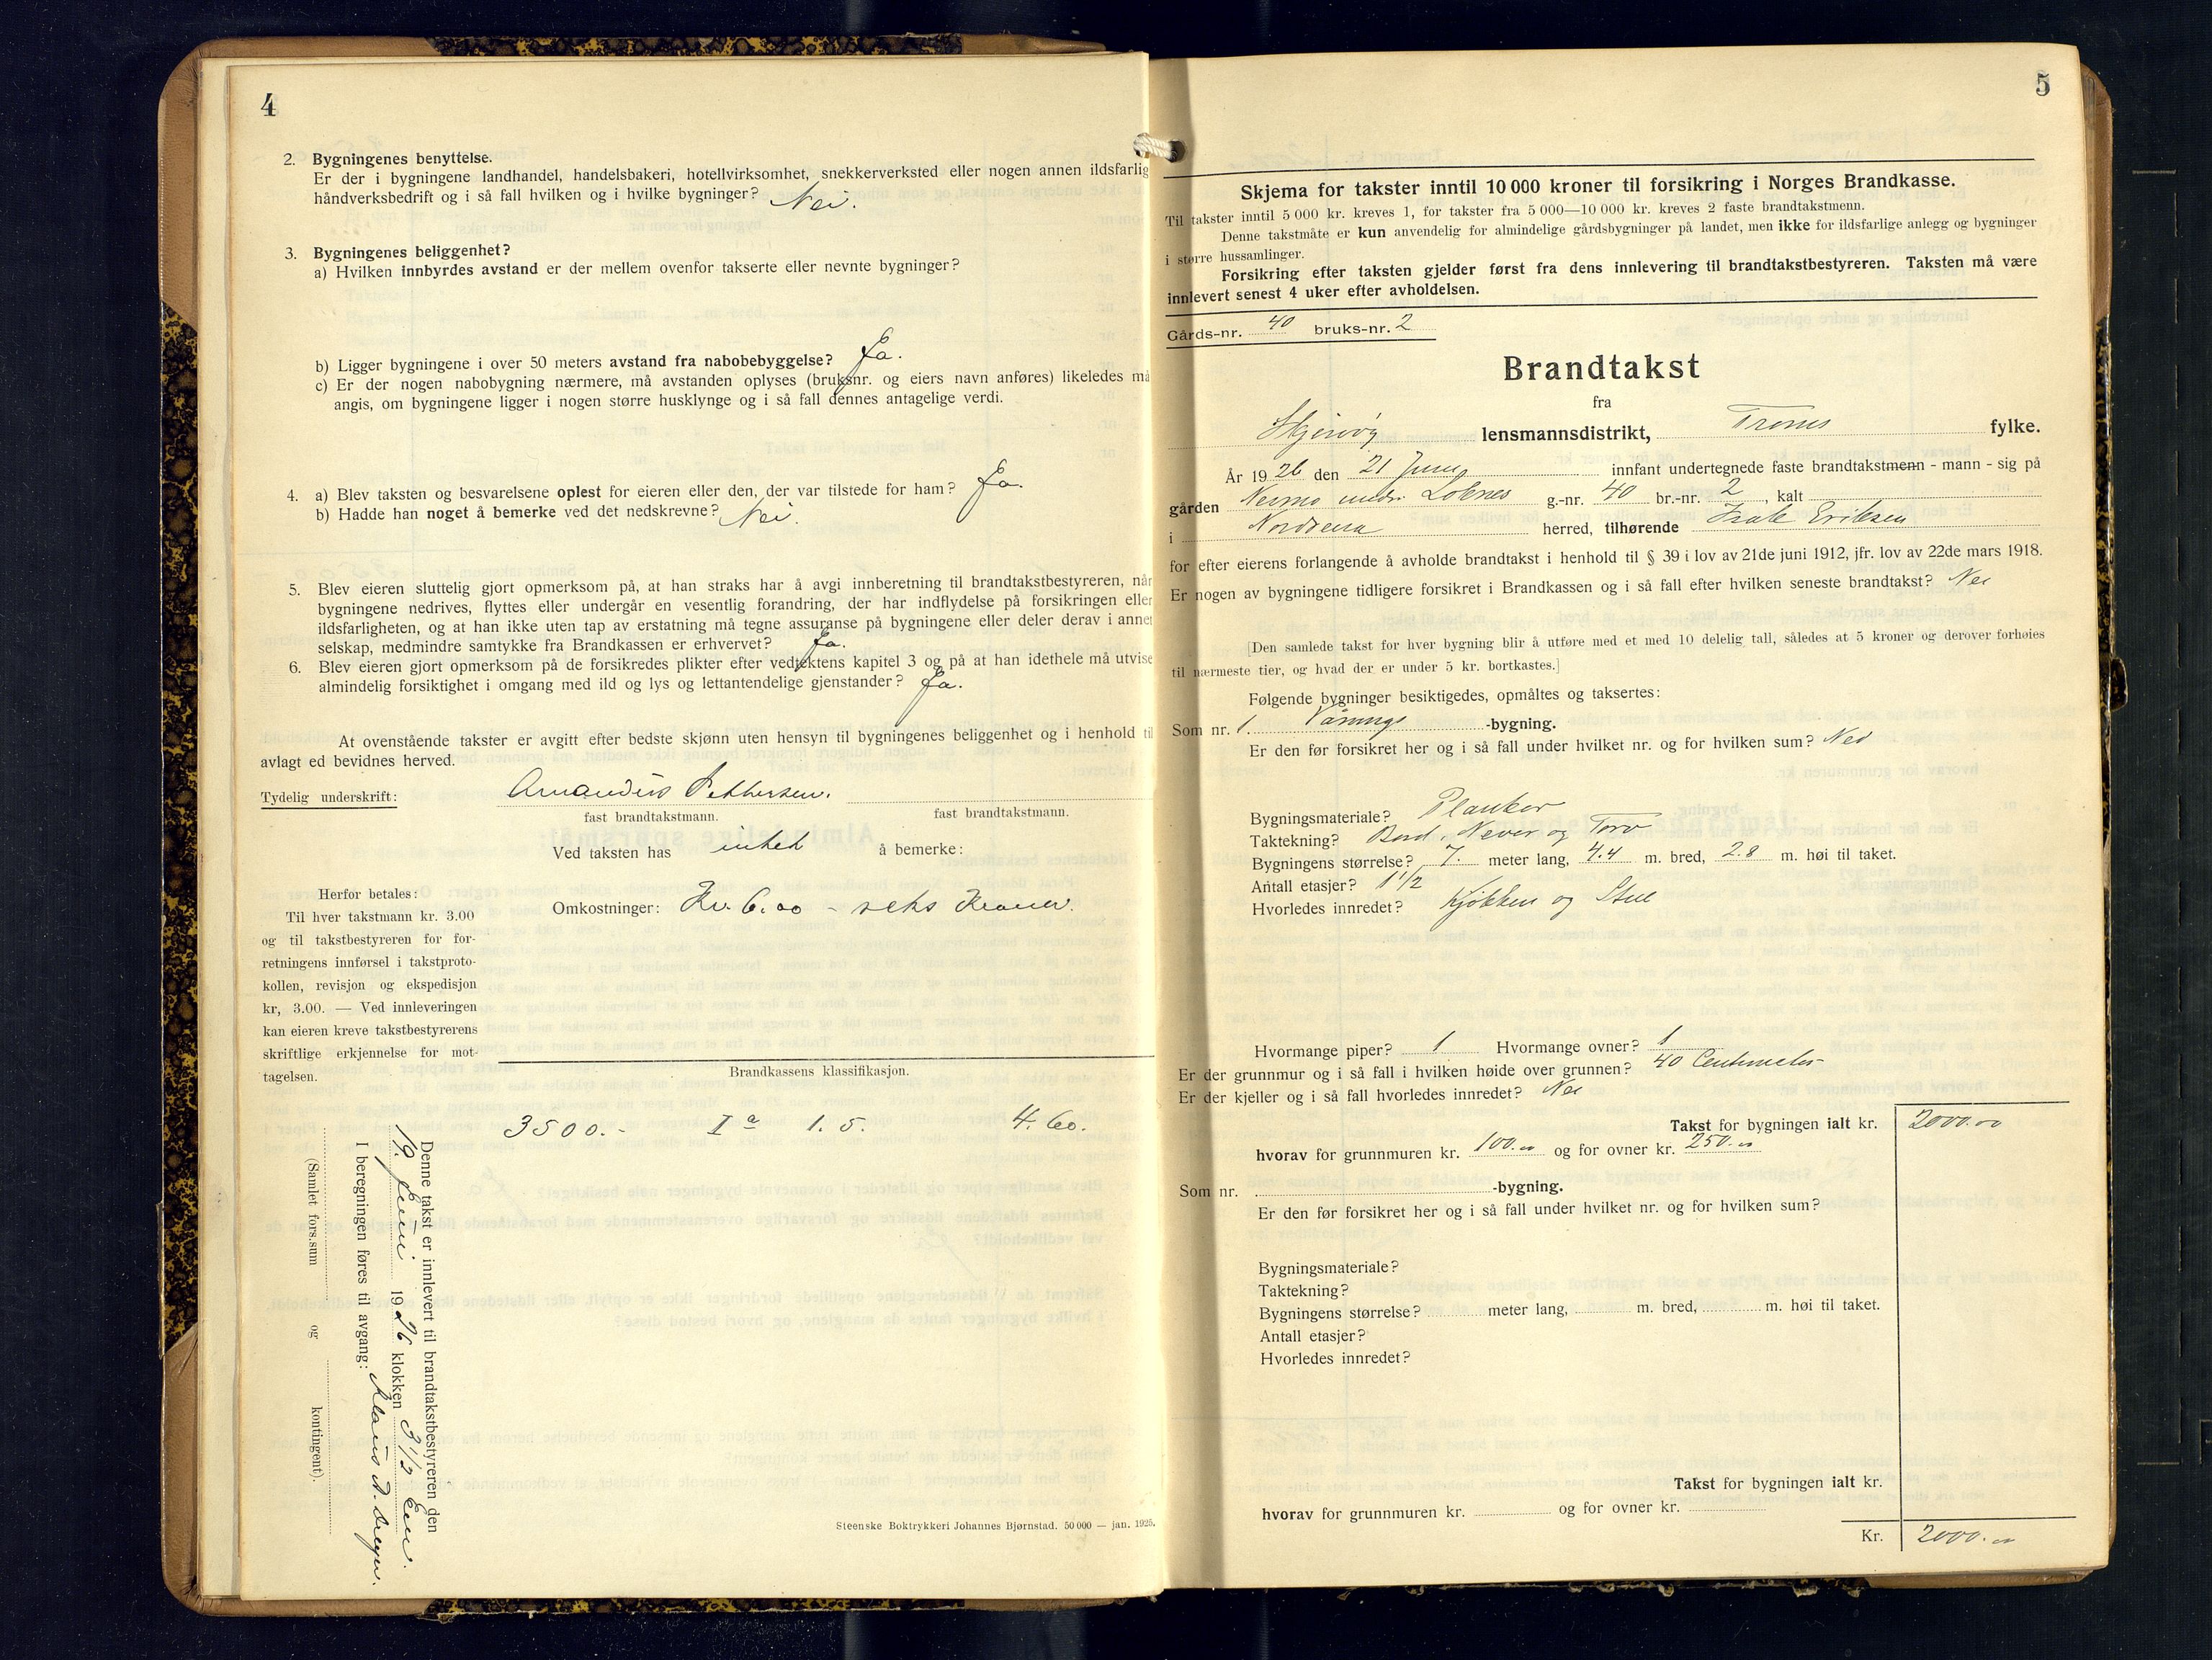 4
2. Bygningenes benyttelse.
Er der i bygningene landhandel, handelsbakeri, hotellvirksomhet, snekkerverksted eller nogen annen ildsfarlig
håndverksbedrift og i så fall hvilken og i hvilke bygninger? Nei.
3. Bygningenes beliggenhet?
a) Hvilken innbyrdes avstand er der mellem ovenfor takserte eller nevnte bygninger?
b) Ligger bygningene i over 50 meters avstand fra nabobebyggelse? Ja.
c) Er der nogen nabobygning nærmere, må avstanden oplyses (bruksnr. og eiers navn anføres) likeledes må
angis, om bygningene ligger i nogen større husklynge og i så fall dennes antagelige verdi.
4. a) Blev taksten og besvarelsene oplest for eieren eller den, der var tilstede for ham? Ja.
b) Hadde han noget å bemerke ved det nedskrevne? Nei.
5. Blev eieren sluttelig gjort opmerksom på, at han straks har å avgi innberetning til brandtakstbestyreren, når
bygningene nedrives, flyttes eller undergår en vesentlig forandring, der har indflydelse på forsikringen eller
ildsfarligheten, og at han ikke uten tap av erstatning må tegne assuranse på bygningene eller deler derav i annet
selskap, medmindre samtykke fra Brandkassen er erhvervet? Ja.
6. Blev eieren gjort opmerksom på de forsikredes plikter efter vedtektens kapitel 3 og på at han idethele må utvise
almindelig forsiktighet i omgang med ild og lys og lettantendelige gjenstander? Ja.
At ovenstående takster er avgitt efter bedste skjønn uten hensyn til bygningenes beliggenhet og i henhold til
avlagt ed bevidnes herved.
Tydelig underskrift: Amandus Pettersen.
fast brandtakstmann. fast brandtakstmann.
Ved taksten has intet å bemerke:
Omkostninger: Kr. 6.00 - seks Kroner.
Herfor betales:
Til hver takstmann kr. 3.00
og til takstbestyreren for for-
retningens innførsel i takstproto-
kollen, revisjon og ekspedisjon
kr, 3.00. — Ved innleveringen
kan eieren kreve takstbestyrerens
skriftlige erkjennelse for mot-
tagelsen.
Brandkassens klassifikasjon.
3500.- I a 1.5. 4.60.
Denne takst er innlevert til brandtakstbestyreren den
19. Juni 1926 klokken 3 1/2 Em.
I beregningen føres til avgang:
(Samlet fors.sum og kontingent).
Steenske Boktrykkeri Johannes Bjørnstad. 50 000 — jan. 1925.
5
Skjema for takster inntil 10 000 kroner til forsikring i Norges Brandkasse.
Til takster inntil 5 000 kr. kreves 1, for takster fra 5 000—10 000 kr. kreves 2 faste brandtakstmenn.
Denne takstmåte er kun anvendelig for almindelige gårdsbygninger på landet, men ikke for ildsfarlige anlegg og bygninger
i større hussamlinger.
Forsikring efter taksten gjelder først fra dens innlevering til brandtakstbestyreren. Taksten må være
innlevert senest 4 uker efter avholdelsen.
Gårds-nr. 40 bruks-nr. 2
Brandtakst
fra
Skjervøy lensmannsdistrikt, Troms fylke.
År 1926 den 21 Juni innfant undertegnede faste brandtakstmenn - mann - sig på
gården Nesmo under Loknes g.-nr. 40 br.-nr. 2, kalt
i Nordreisa herred, tilhørende Isak Eriksen
for efter eierens forlangende å avholde brandtakst i henhold til § 39 i lov av 21de juni 1912, jfr. lov av 22de mars 1918.
Er nogen av bygningene tidligere forsikret i Brandkassen og i så fall efter hvilken seneste brandtakst? Nei
[Den samlede takst for hver bygning blir å utføre med et med 10 delelig tall, således at 5 kroner og derover forhøies
til nærmeste tier, og hvad der er under 5 kr. bortkastes.]
Følgende bygninger besiktigedes, opmåltes og taksertes:
Som nr. 1. Vånings -bygning.
Er den før forsikret her og i så fall under hvilket nr. og for hvilken sum? Nei
Bygningsmateriale? Planker
Taktekning? Bord, Never og Torv
Bygningens størrelse? 7. meter lang, 4.4 m. bred, 2.8 m. høi til taket.
Antall etasjer? 1 1/2
Hvorledes innredet? Kjøkken og Stue
Hvormange piper? 1 Hvormange ovner? 1
Er der grunnmur og i så fall i hvilken høide over grunnen? 40 Centimeter
Er der kjeller og i så fall hvorledes innredet? Nei
Takst for bygningen ialt kr. 2000.00
hvorav for grunnmuren kr. 100.00 og for ovner kr. 250.00
Som nr. -bygning.
Er den før forsikret her og i så fall under hvilket nr. og for hvilken sum?
Bygningsmateriale?
Taktekning?
Bygningens størrelse? meter lang, m. bred, m. høi til taket.
Antall etasjer?
Hvorledes innredet?
Takst for bygningen ialt kr.
hvorav for grunnmuren kr. og for ovner kr.
Kr. 2000.00